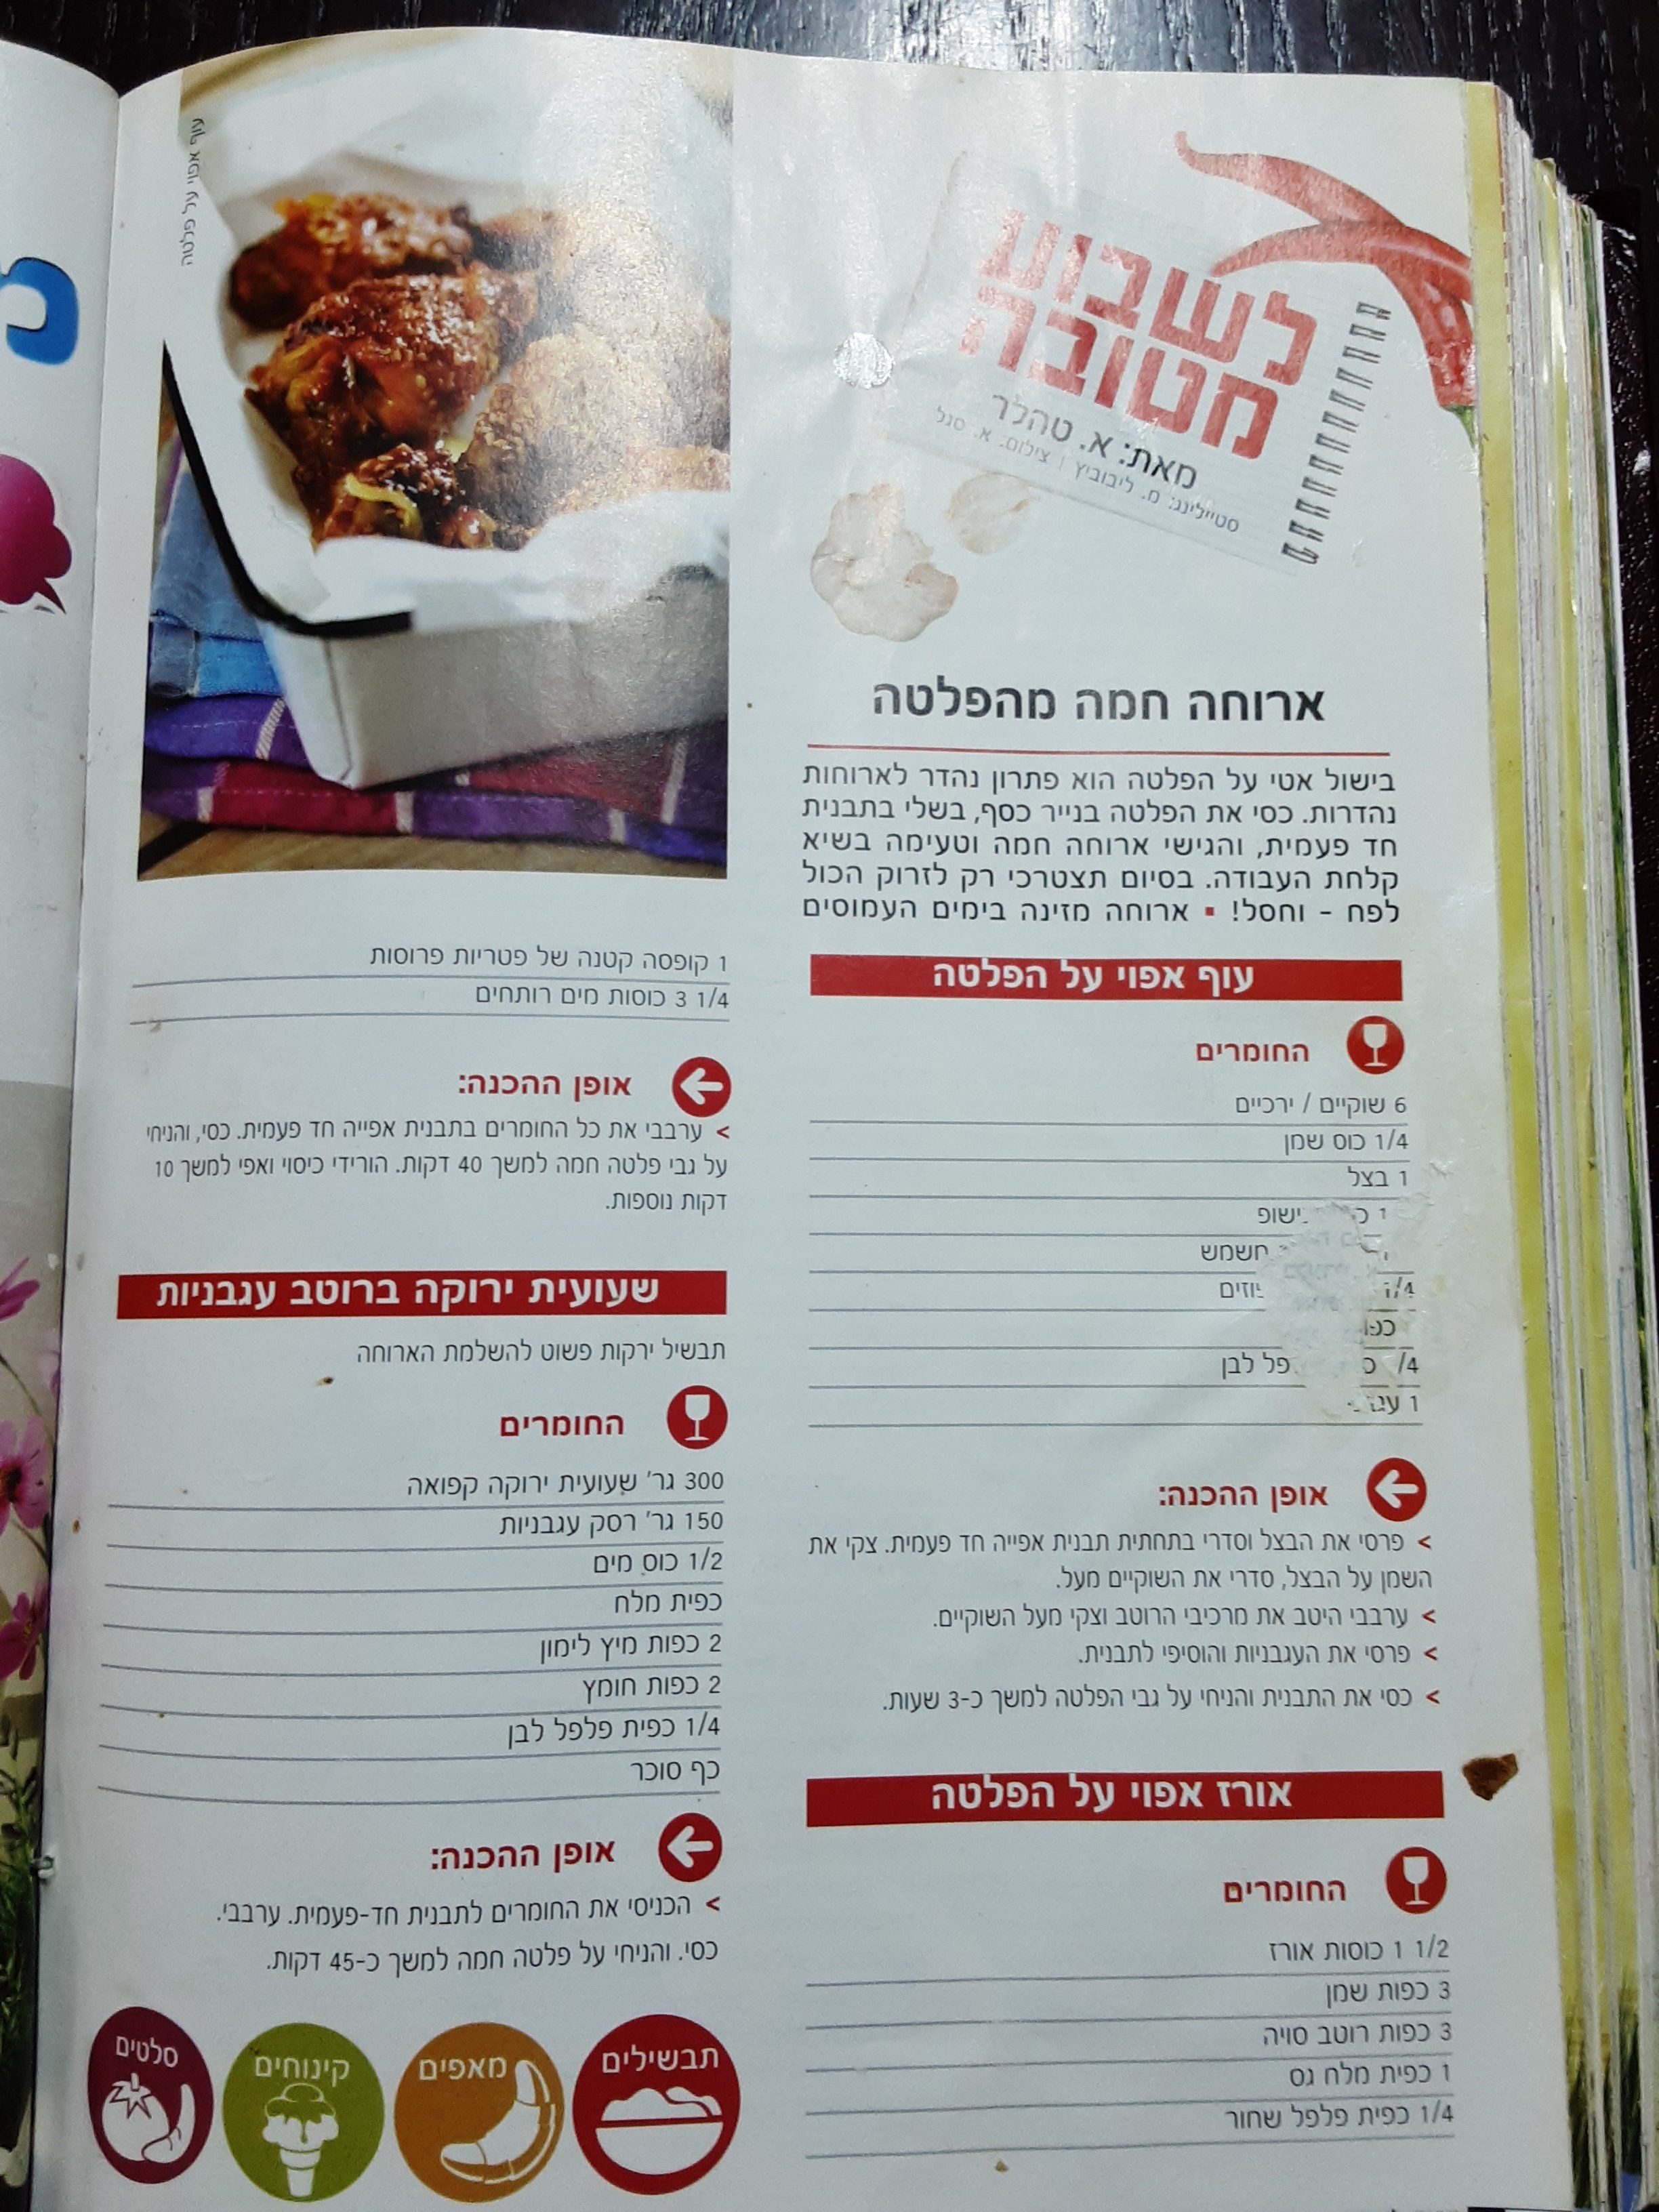 לשבוע
מטובה
מאת: א. טהלר
סטיילינג: מ. ליבוביץ | צילום: א. סגל
ארוחה חמה מהפלטה
בישול אטי על הפלטה הוא פתרון נהדר לארוחות
נהדרות. כסי את הפלטה בנייר כסף, בשלי בתבנית
חד פעמית, והגישי ארוחה חמה וטעימה בשיא
קלחת העבודה. בסיום תצטרכי רק לזרוק הכול
לפח - וחסל! ▪ ארוחה מזינה בימים העמוסים
עוף אפוי על הפלטה
החומרים
6 שוקיים / ירכיים
1/4 כוס שמן
1 בצל
1
משמש
1/4
פל לבן
1
אופן ההכנה:
> פרסי את הבצל וסדרי בתחתית תבנית אפייה חד פעמית. צקי את
השמן על הבצל, סדרי את השוקיים מעל.
> ערבבי היטב את מרכיבי הרוטב וצקי מעל השוקיים.
> פרסי את העגבניות והוסיפי לתבנית.
> כסי את התבנית והניחי על גבי הפלטה למשך כ-3 שעות.
אורז אפוי על הפלטה
החומרים
1 1/2 כוסות אורז
3 כפות שמן
3 כפות רוטב סויה
1 כפית מלח גס
1/4 כפית פלפל שחור
עוף אפוי על פלטה
1 קופסה קטנה של פטריות פרוסות
3 1/4 כוסות מים רותחים
אופן ההכנה:
> ערבבי את כל החומרים בתבנית אפייה חד פעמית. כסי, והניחי
על גבי פלטה חמה למשך 40 דקות. הורידי כיסוי ואפי למשך 10
דקות נוספות.
שעועית ירוקה ברוטב עגבניות
תבשיל ירקות פשוט להשלמת הארוחה
החומרים
300 גר' שעועית ירוקה קפואה
150 גר' רסק עגבניות
1/2 כוס מים
כפית מלח
2 כפות מיץ לימון
2 כפות חומץ
1/4 כפית פלפל לבן
כף סוכר
אופן ההכנה:
> הכניסי את החומרים לתבנית חד-פעמית. ערבבי.
כסי. והניחי על פלטה חמה למשך כ-45 דקות.
תבשילים
מאפים
קינוחים
סלטים